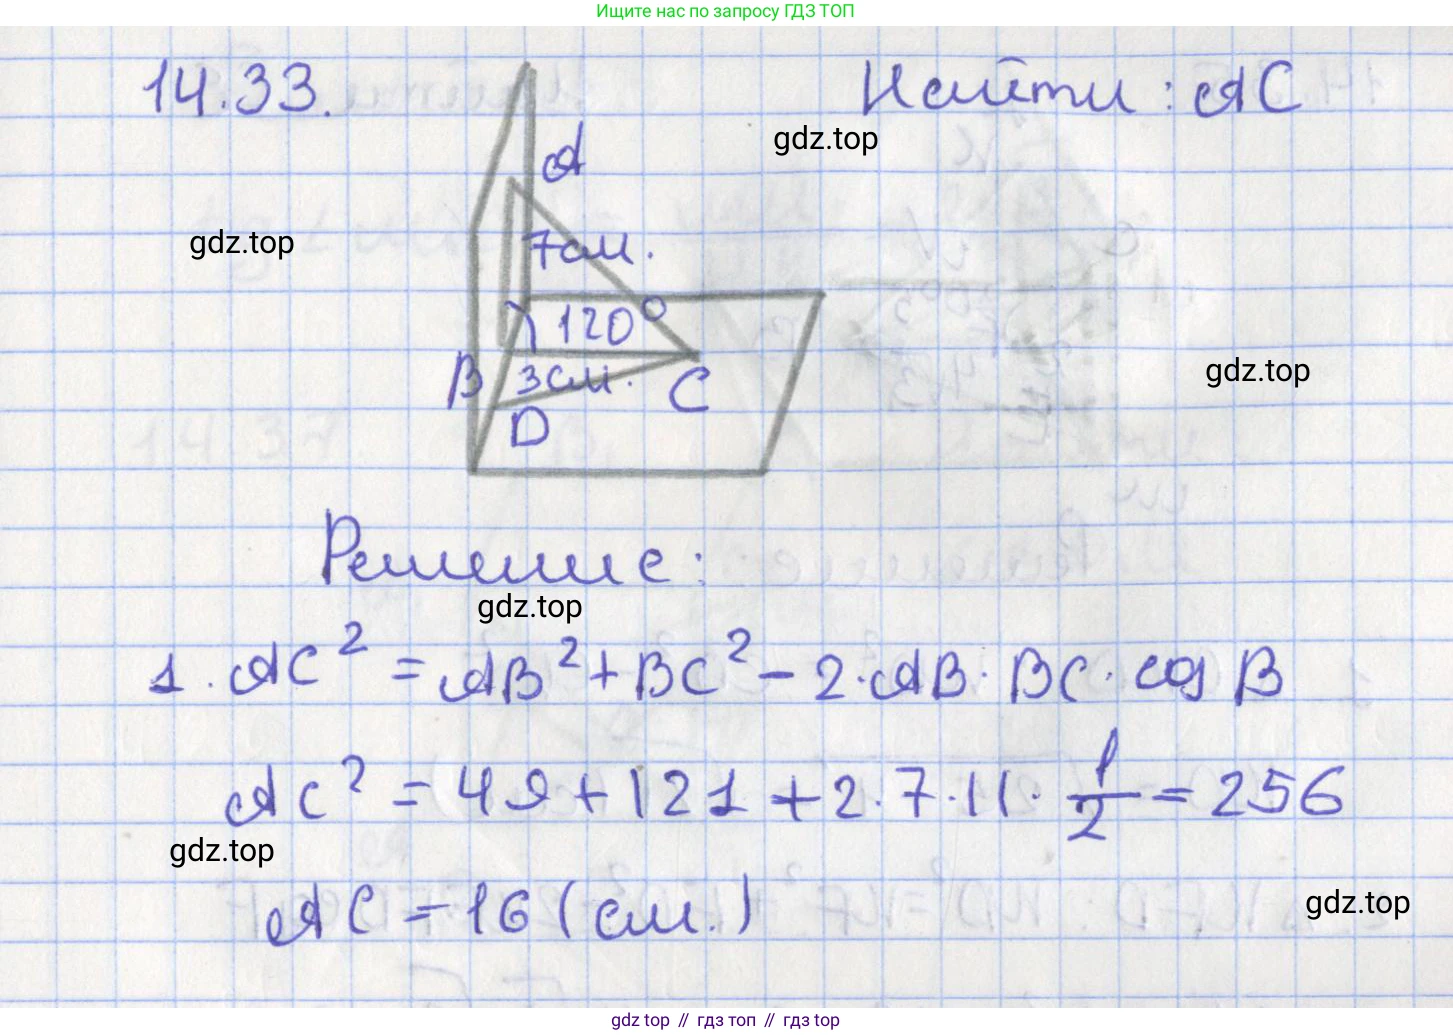 Ищите нас по запросу ГДЗ ТОП
14.33.
Найти: AC
gdz.top
A
gdz.top
7см.
120°
B
3см.
C
gdz.top
D
Решение:
gdz.top
1. AC² = AB² + BC² - 2·AB·BC·cos B
AC² = 49 + 121 + 2·7·11·1/2 = 256
gdz.top
AC = 16 (см.)
gdz.top
gdz top // гдз топ // гдз top